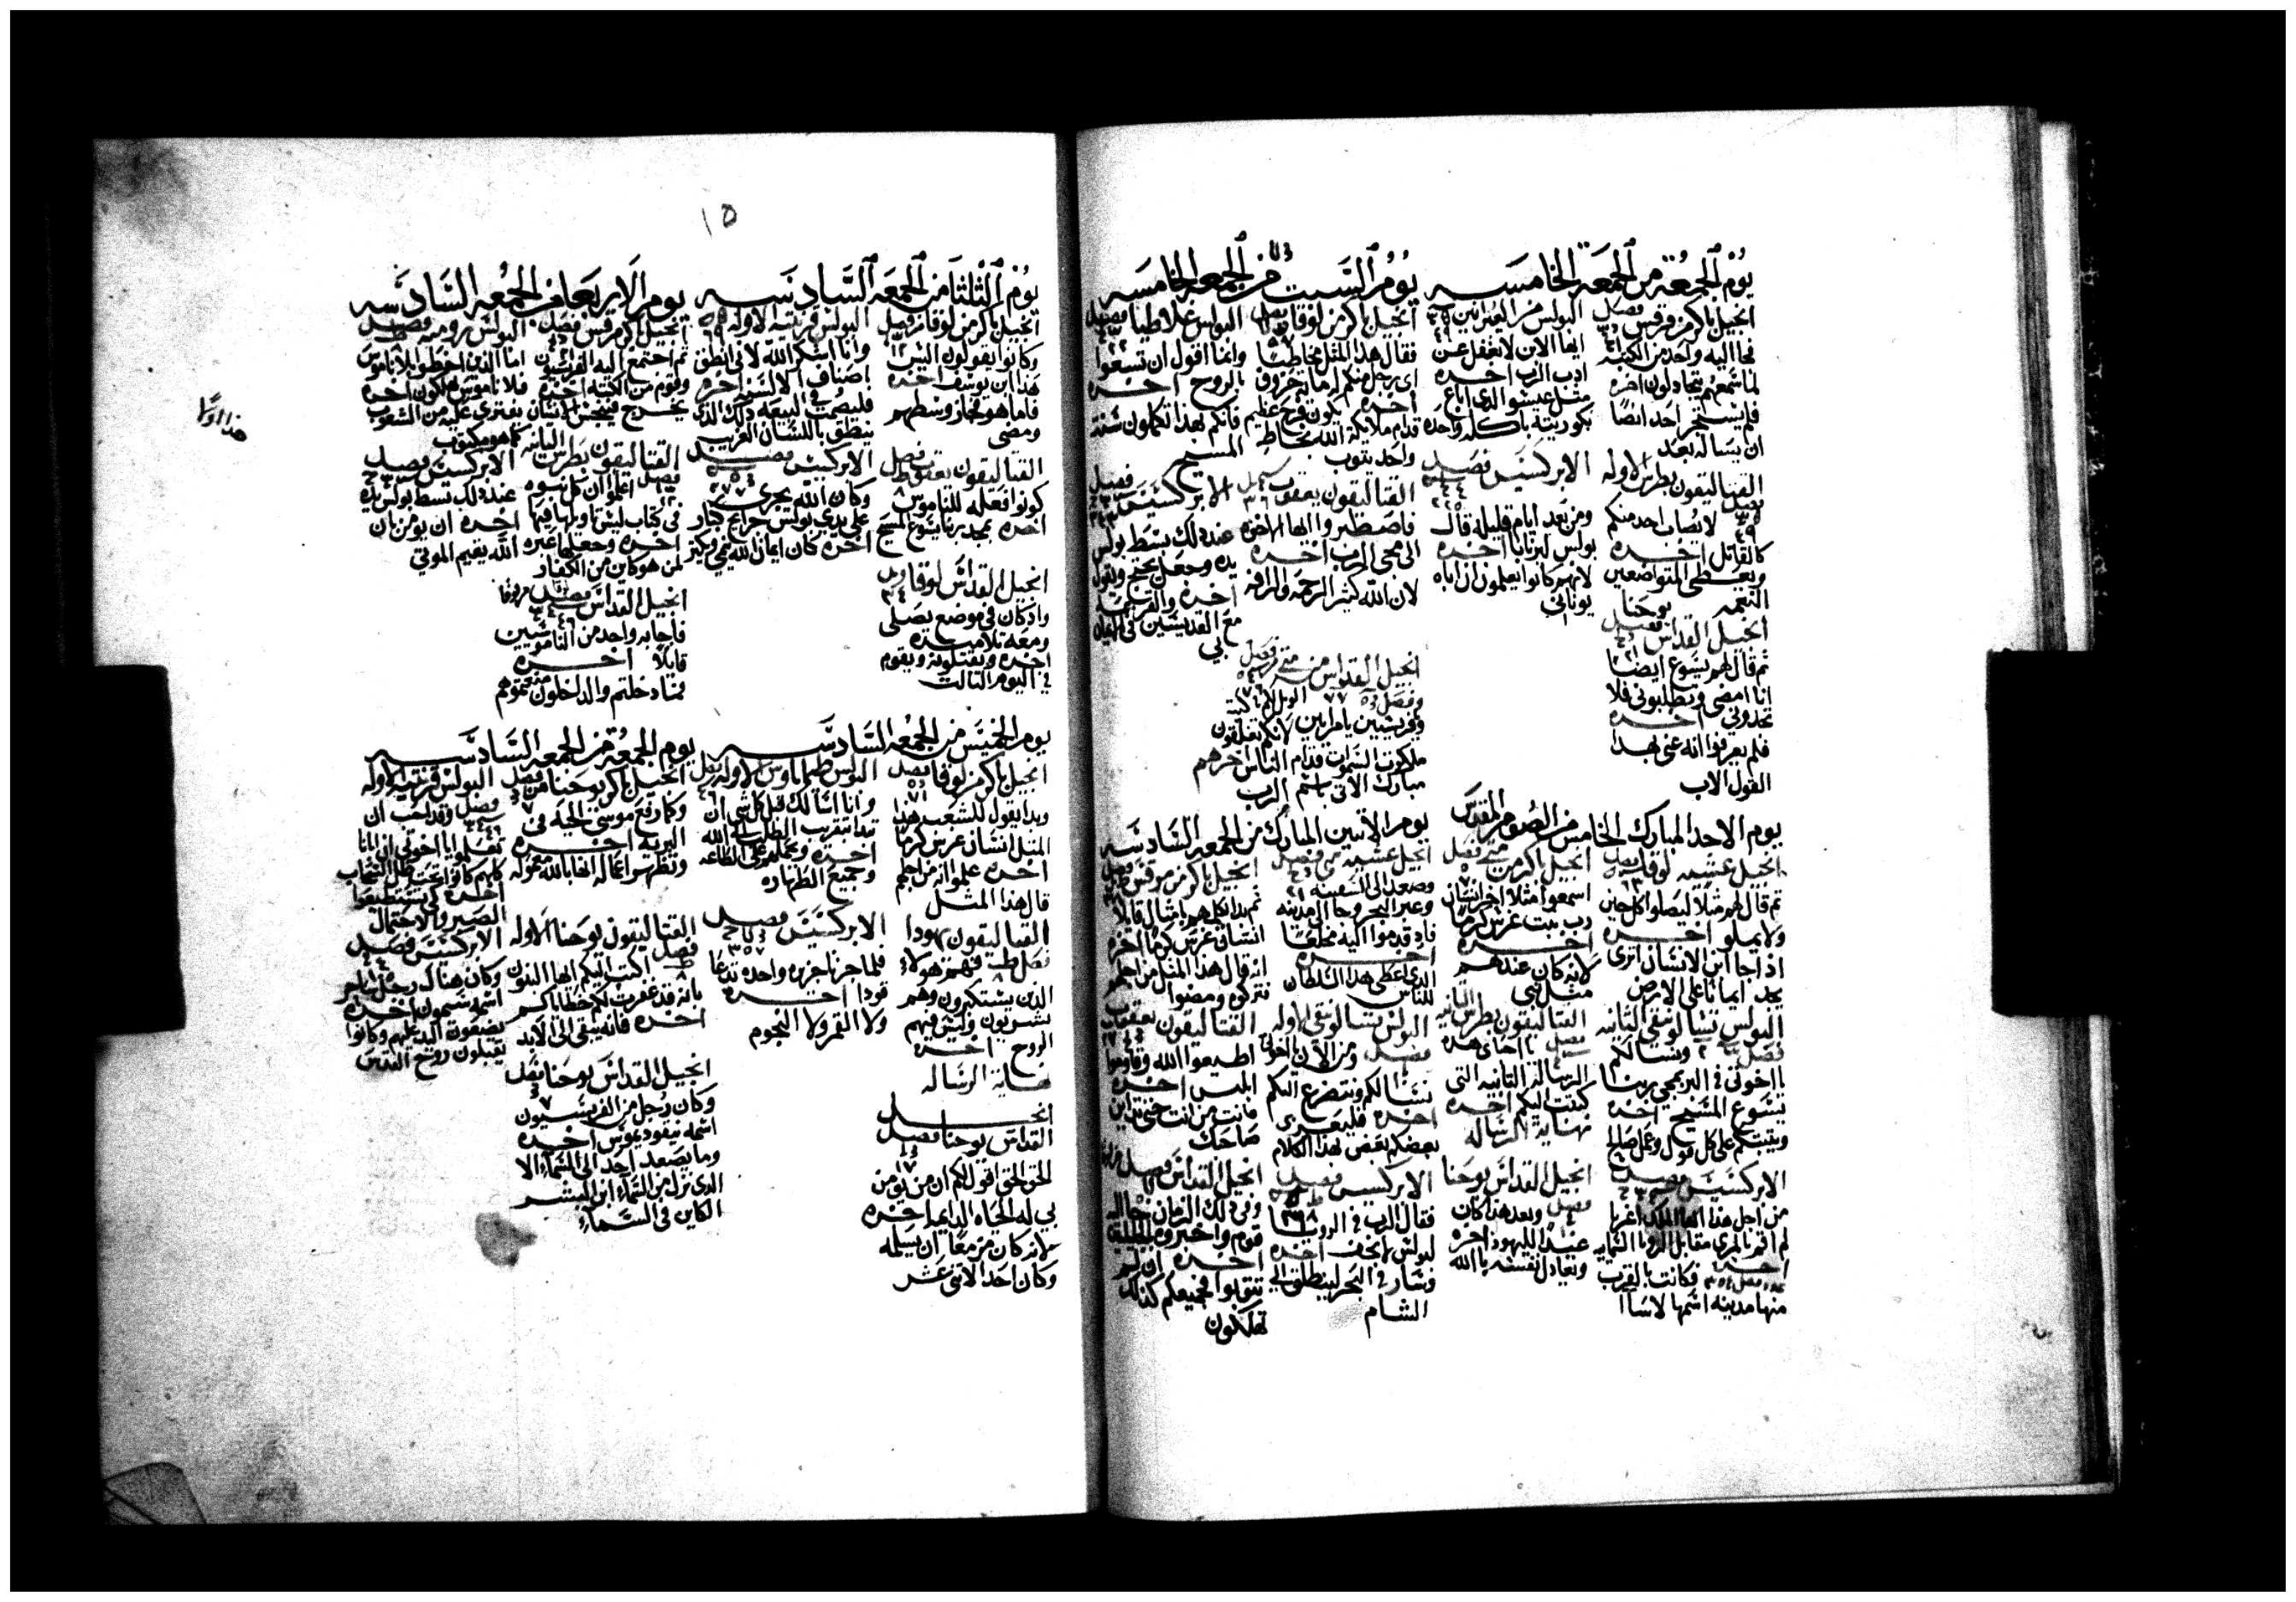 يوم الجمعة من الجمعة الخامسه
انجيل باكر من مرقس فصل
فجا اليه واحد من الكتبه
لما سمعهم يتجادلون اخره
فلم يستجر احد ايضا
ان يساله بعد
البولس من العبرانيين
ايها الابن لا تغفل عن
ادب الرب اخره
مثل عيسو الذى اباع
بكوريته باكله واحده
القتاليقون بطرس الاوله
فصل لا يصاب احد منكم
كالقاتل اخره
ويعطى المتواضعين
النعمه
الابركسيس فصل
ومن بعد ايام قليله قال
بولس لبرنابا اخره
لانهم كانوا يعلمون ان اباه
يونانى
انجيل القداس يوحنا فصل
ثم قال لهم يسوع ايضا
انا امضى وتطلبونى فلا
تجدونى اخره
فلم يعرفوا انه عنى بهذا
القول الاب
يوم السبت من الجمعه الخامسه
انجيل باكر من لوقا فصل
فقال هذا المثل مخاطبا
اى رجل منكم له ماية خروف
اخره يكون فرح عظيم
قدام ملايكة الله بخاطى
واحد يتوب
البولس غلاطيا فصل
وانما اقول ان تسعوا
بالروح اخره
فانكم بهذا تكملون سنة
المسيح
القتاليقون يعقوب
فاصطبروا ايها الاخوه
الى مجى الرب اخره
لان الله كثير الرحمة والرافه
الابركسيس فصل
عند ذلك بسط بولس
يده وجعل يحتج ويقول
اخره
مع القديسين فى الايمان
بى
انجيل القداس من متى فصل
الويل لكم يا كتبة
وفريسيين يا مرايين لانكم تغلقون
ملكوت السموات قدام الناس اخرهم
مبارك الاتى باسم الرب
يوم الاحد المبارك الخامس من الصوم المقدس
انجيل عشيه لوقا فصل
ثم قال لهم مثلا ليصلوا كل حين
ولا يملوا اخره
اذا جا ابن الانسان اترى
يجد ايمانا على الارض
انجيل باكر من متى فصل
اسمعوا مثلا اخر انسان
رب بيت غرس كرما
اخره
لانه كان عندهم
مثل نبى
البولس تسالونيقى الثانيه
فصل ونسالكم
يا اخوتى فى البر بمجى ربنا
يسوع المسيح اخره
ويثبتكم على كل قول وعمل صالح
القتاليقون بطرس الثانيه
فصل يا احباى هذه
الرساله الثانيه التى
كتبت اليكم اخره
نهاية الرساله
الابركسيس فصل
من اجل هذا ايها الملك اغربا
اخره
فكانت بالقرب
منها مدينه اسمها لاسا
انجيل القداس يوحنا
فصل وبعد هذا كان
عيدا لليهود اخره
ويعادل نفسه بالله
يوم الاثنين المبارك من الجمعه السادسه
انجيل عشيه متى فصل
وصعد الى السفينه
وعبر البحر وجا الى مدينه
فاذ قدموا اليه مخلعا
اخره
الذى اعطى هذا السلطان
للناس
انجيل باكر من مرقس فصل
ثم بدا يكلمهم بامثال قايلا
انسان غرس كرما اخره
انه قال هذا المثل من اجلهم
فتركوه ومضوا
البولس تسالونيقى الاوله
فصل ومن الان يا اخوتى
نسالكم ونتضرع اليكم
اخره فليعزى
بعضكم بعض بهذا الكلام
القتاليقون يعقوب
اطيعوا الله وقاوموا
ابليس اخره
فانت من انت حتى تدين
صاحبك
الابركسيس فصل
فقال الرب فى الرويا
لبولس لا تخف اخره
وسار فى البحر لينطلق الى
الشام
انجيل القداس فصل
وفى ذلك الزمان جا اليه
قوم واخبروه
اخره ان لم
تتوبوا فجميعكم كذلك
تهلكون
١٥
يوم الثلثا من الجمعه السادسه
انجيل باكر من لوقا فصل
وكانوا يقولون اليس
هذا ابن يوسف اخره
فاما هو فجاز وسطهم
ومضى
البولس قرنتيه الاوله
وانا اشكر الله لانى انطق
باصناف الالسن اخره
فليصمت فى البيعه ذلك الذى
ينطق باللسان الغريب
القتاليقون يعقوب فصل
كونوا فعله للناموس
اخره بمجد ربنا يسوع المسيح
الابركسيس فصل
وكان الله يجرى
على يدى بولس جرايح كبار
اخره كان ايمان الله ينمى ويكثر
انجيل القداس لوقا
واذ كان فى موضع يصلى
ومعه تلاميذه
اخره ويقتلونه ويقوم
فى اليوم الثالث
يوم الاربعا من الجمعه السادسه
انجيل باكر مرقس فصل
ثم اجتمع اليه الفريسيون
وقوم من الكتبه اخره
يخرج فينجس الانسان
البولس روميه فصل
اما الذين اخطوا بلا ناموس
فلا ناموس يهلكون اخره
يفترى عليه من الشعوب
كما هو مكتوب
القتاليقون بطرس الثانيه
فصل اعلموا ان كل نبوه
فى كتاب ليس تاويلها فيها
اخره وجعلها عبره
لمن هو كاين من الكفار
الابركسيس فصل
عند ذلك بسط بولس يده
اخره ان يومن بان
الله يقيم الموتى
انجيل القداس فصل من لوقا
فاجابه واحد من الناموسيين
قايلا اخره
فما دخلتم والداخلون منعتموهم
هذا اولا
يوم الخميس من الجمعه السادسه
انجيل باكر من لوقا فصل
وبدا يقول للشعب هذا
المثل انسان غرس كرما
اخره علموا انه من اجلهم
قال هذا المثل
البولس طيماثاوس الاوله فصل
وانا اسالك قبل كل شى ان
تبدا بتقريب الطلب الى الله
اخره
وجميع الطهاره
القتاليقون يهودا
فصل فهم هولاء
الذين يستكبرون وهم
نفسانيون وليس فيهم
الروح اخره
نهاية الرساله
الابركسيس فصل
فلما جزنا جزيره واحده تدعا
قودا اخره
ولا القمر ولا النجوم
انجيل
القداس يوحنا فصل
الحق الحق اقول لكم ان من يومن
بى له الحياه الدايمه اخره
لانه كان مزمعا ان يسلمه
وكان احد الاثنى عشر
يوم الجمعة من الجمعه السادسه
انجيل باكر يوحنا فصل
وكما رفع موسى الحيه فى
البريه اخره
وتظهر اعماله انها بالله معموله
البولس قرنتيه الاوله
فصل وقد احب ان
تعلموا يا اخوتى ان ابانا
كلهم كانوا تحت ظل السحاب
اخره كى تستطيعوا
الصبر والاحتمال
القتاليقون يوحنا الاوله
فصل اكتب اليكم ايها البنون
بانه قد غفرت لكم خطاياكم
اخره فانه يبقى الى الابد
الابركسيس فصل
وكان هناك رجل ساحر
اسمه سيمون اخره
يضعون اليد عليهم وكانوا
يقبلون روح القدس
انجيل القداس يوحنا فصل
وكان رجل من الفريسيون
اسمه نيقوديموس اخره
وما يصعد احد الى السماء الا
الذى نزل من السماء ابن البشر
الكاين فى السماء